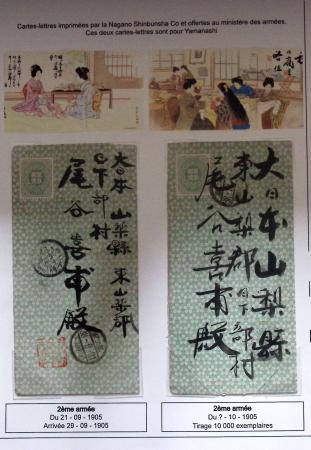 Cartes-lettres imprimées par la Nagano Shinbunsha Co et offertes au ministère des armées.
Ces deux cartes-lettres sont pour Yamanashi
大日本 山梨縣 東山梨郡
日下部村
尾谷喜甫殿
大日本山梨縣
東山梨郡日下部村
尾谷喜甫殿
2ème armée
Du 21 - 09 - 1905
Arrivée 29 - 09 - 1905
2ème armée
Du ? - 10 - 1905
Tirage 10 000 exemplaires